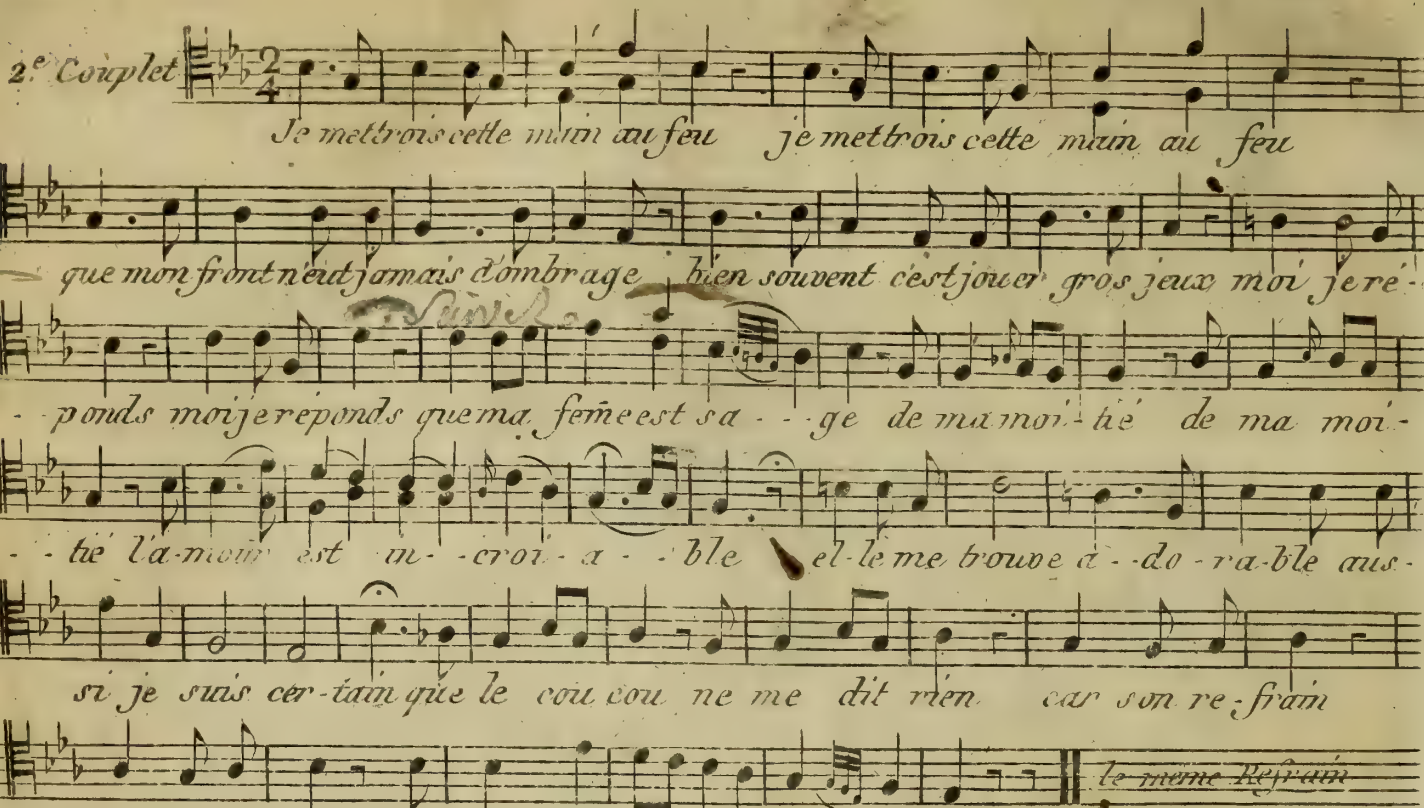 2.e Couplet 2 4
Je mettrois cette main au feu je mettrois cette main au feu
que mon front n'eut jamais d'ombrage bien souvent c'est jouer gros jeux moi je ré-
- ponds moi je reponds que ma fem̃e est sa - - - ge de ma moi - tié de ma moi -
- - tié l'a-mour est in - croi - a - - ble el-le me trouve a - - do - ra-ble aus -
si je suis cer-tain que le cou cou ne me dit rien car son re - frain
le même Refrain